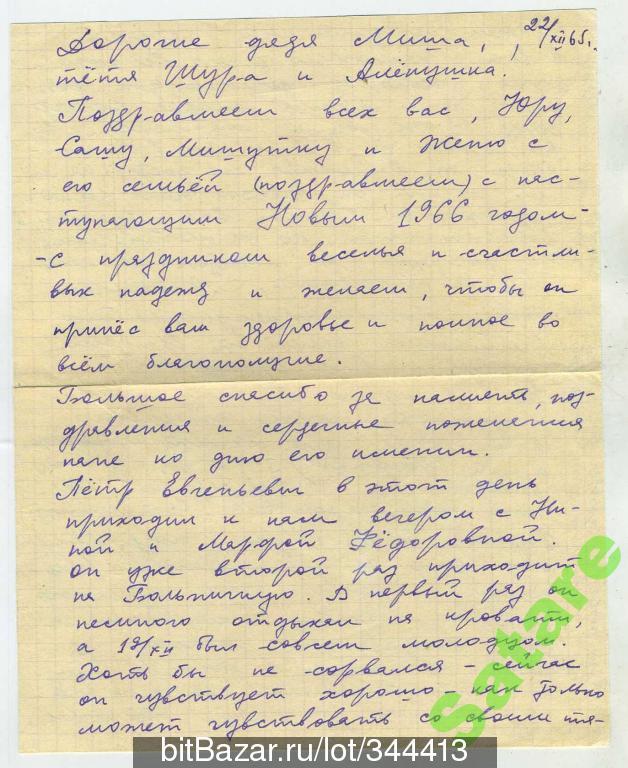 22/XII 65г.
Дорогие дядя Миша,
тётя Шура и Алёнушка.
Поздравляем всех вас, Юру,
Сашу, Мишутку и Женю с
его семьёй (поздравляем) с нас-
тупающим Новым 1966 годом -
- с праздником веселья и счастли-
вых надежд и желаем, чтобы он
принёс вам здоровье и полное во
всём благополучие.
Большое спасибо за память, поз-
дравления и сердечные пожелания
папе ко дню его именин.
Пётр Евгеньевич в этот день
приходил к нам вечером с Ни-
ной и Марфой Фёдоровной.
он уже второй раз приходит
на Больничную. В первый раз он
немного отдыхал на кровати,
а 12/XII был совсем молодцом.
Хоть бы не сорвался - сейчас
он чувствует хорошо - как только
может чувствовать со своим тя-
Satare
bitBazar.ru/lot/344413